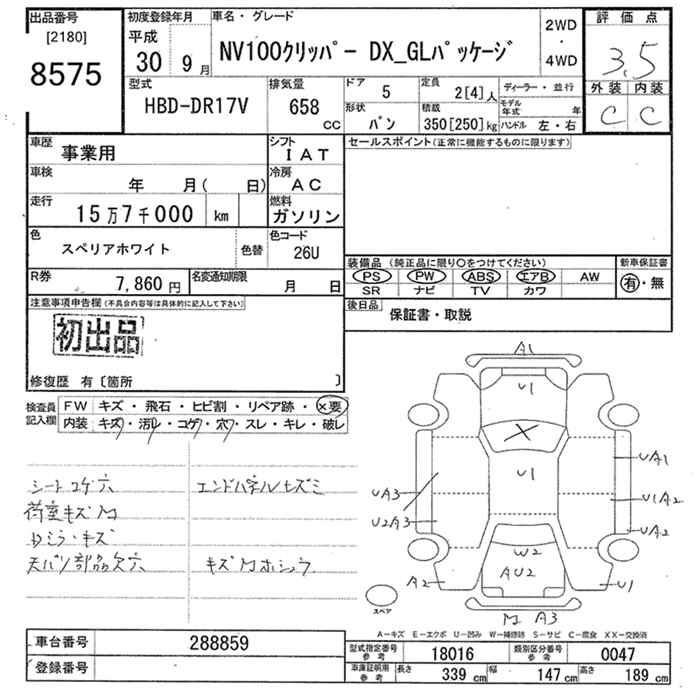 出品番号
[2180]
8575
初度登録年月
平成
30 9月
車名・グレード
NV100クリッパー DX_GLパッケージ
2WD
・
4WD
評価点
3.5
外装 内装
C C
型式
HBD-DR17V
排気量
658
cc
ドア 5
定員 2[4]人
形状 バン
積載 350[250]kg
ディーラー・並行
モデル年式 年
ハンドル 左・右
車歴 事業用
シフト
IAT
車検 年 月( 日)
冷房
AC
走行 15万7千000 km
燃料
ガソリン
色 スペリアホワイト 色替
色コード
26U
R券 7,860円
名変通知期限 月 日
セールスポイント(正常に機能するものに限ります)
装備品 (純正品に限り○をつけてください)
PS PW ABS エアB AW
SR ナビ TV カワ
新車保証書
有・無
後日品 保証書・取説
注意事項申告欄(不具合内容等は具体的に記入して下さい)
初出品
修復歴 有〔箇所 〕
検査員記入欄
FW キズ・飛石・ヒビ割・リペア跡・×要
内装 キズ・汚レ・コゲ・穴・スレ・キレ・破レ
シートコゲ穴
荷室キズM
Dミラ・キズ
天バリ部品欠穴
エンドパネルヒズミ
キズMホシュウ
A1
U1
X
U1
UA3
U2A3
UA1
U1A2
UA2
W2
AU2
A2
U1
M A3
スペア
A-キズ E-エクボ U-凹み W-補修跡 S-サビ C-腐食 XX-交換済
車台番号 288859
登録番号
型式指定番号参考 18016
類別区分番号参考 0047
車庫証明用参考 長さ 339cm 幅 147cm 高さ 189cm